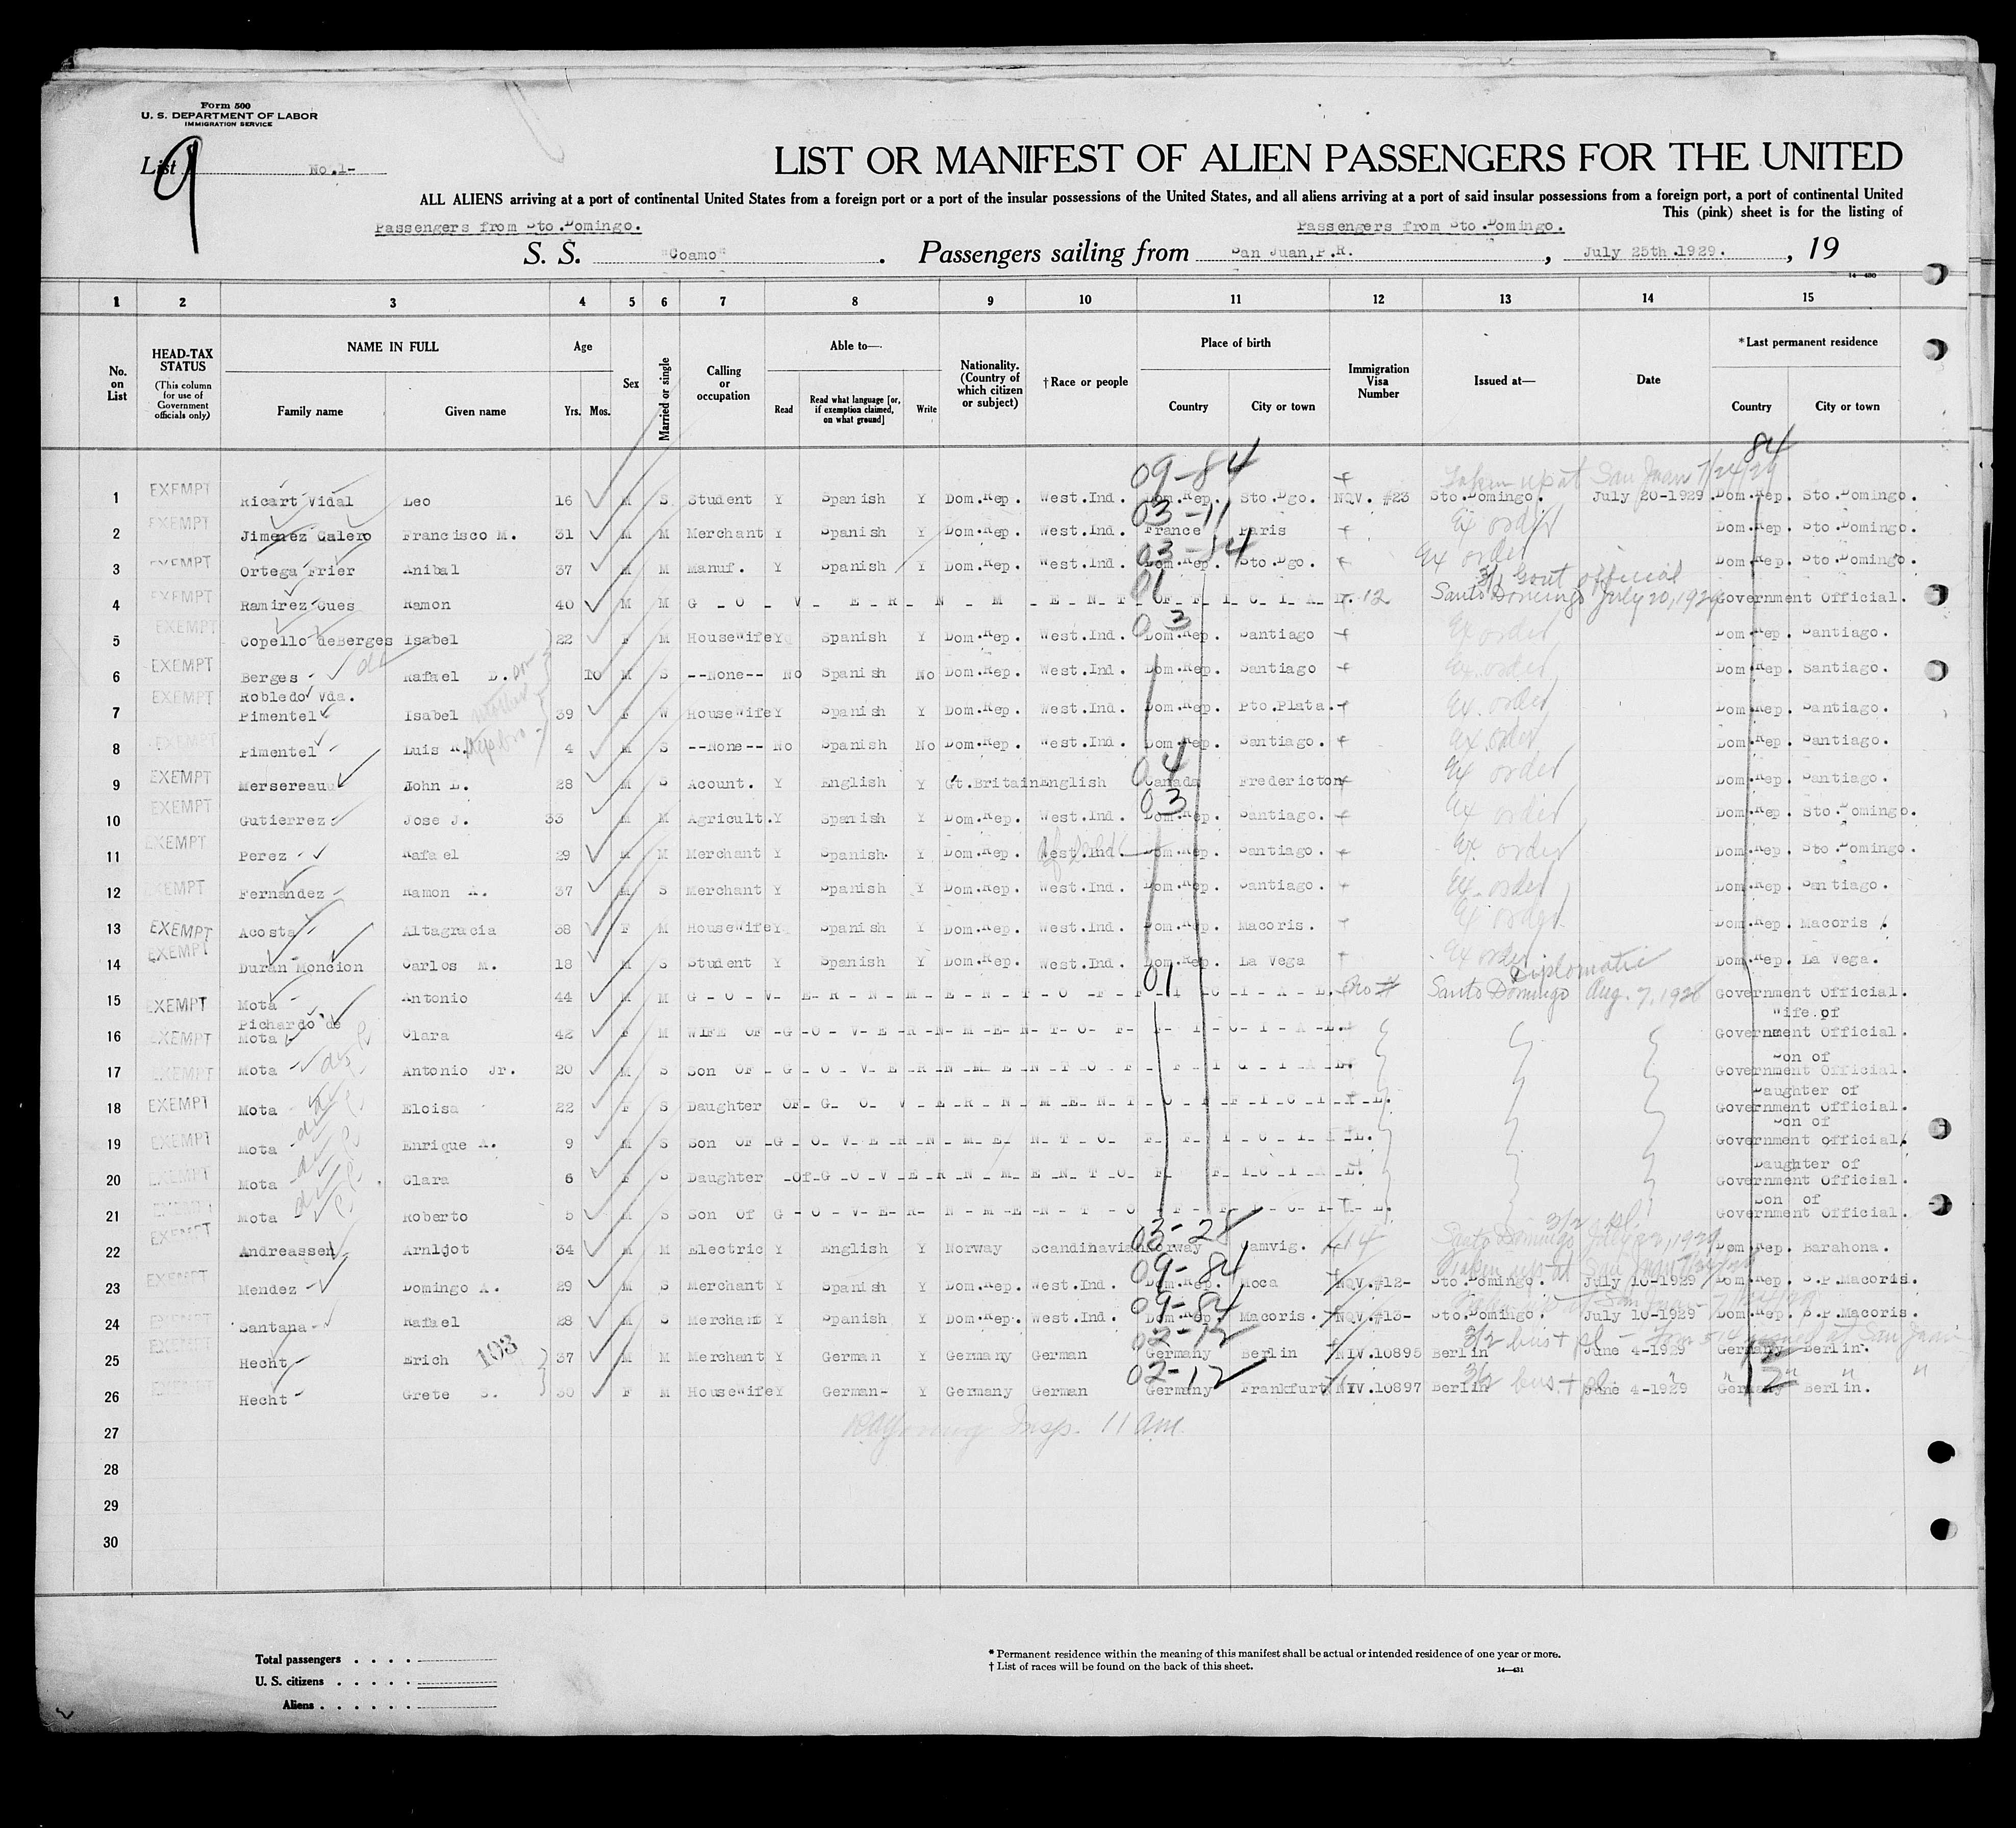 Form 500
U. S. DEPARTMENT OF LABOR
IMMIGRATION SERVICE
List 9 No.1-
LIST OR MANIFEST OF ALIEN PASSENGERS FOR THE UNITED
ALL ALIENS arriving at a port of continental United States from a foreign port or a port of the insular possessions of the United States, and all aliens arriving at a port of said insular possessions from a foreign port, a port of continental United
This (pink) sheet is for the listing of
Passengers from Sto.Domingo. Passengers from Sto.Domingo.
S. S. "Coamo" . Passengers sailing from San Juan,P.R. , July 25th.1929. , 19
14—430
1 2 3 4 5 6 7 8 9 10 11 12 13 14 15
No. on List
HEAD-TAX STATUS (This column for use of Government officials only)
NAME IN FULL Family name Given name
Age Yrs. Mos.
Sex
Married or single
Calling or occupation
Able to— Read Read what language [or, if exemption claimed, on what ground] Write
Nationality. (Country of which citizen or subject)
† Race or people
Place of birth Country City or town
Immigration Visa Number
Issued at—
Date
* Last permanent residence Country City or town
84
09-84 Taken up at San Juan 7/24/29
1 EXEMPT Ricart Vidal Leo 16 M S Student Y Spanish Y Dom.Rep. West.Ind. Dom.Rep. Sto.Dgo. NQV. #23 Sto.Domingo. July 20-1929. Dom.Rep. Sto.Domingo.
03-11 Ex order
2 EXEMPT Jimenez Galero Francisco M. 31 M M Merchant Y Spanish Y Dom.Rep. West.Ind. France Paris Dom.Rep. Sto.Domingo.
03-84 Ex order
3 EXEMPT Ortega Frier Anibal 37 M M Manuf. Y Spanish Y Dom.Rep. West.Ind. Dom.Rep. Sto.Dgo. Dom.Rep. Sto.Domingo.
01 3/1 Govt official
4 EXEMPT Ramirez Gues Ramon 40 M M G_O_V_E_R_N_M_E_N_T_OF_F_I_C_I_A_L. 12 Santo Domingo July 20, 1929 Government Official.
03 Ex order
5 EXEMPT Copello deBerges Isabel 22 F M Housewife Y Spanish Y Dom.Rep. West.Ind. Dom.Rep. Santiago Dom.Rep. Santiago.
6 EXEMPT Berges de Rafael D. son 10 M S --None-- No Spanish No Dom.Rep. West.Ind. Dom.Rep. Santiago Ex order Dom.Rep. Santiago.
Robledo Vda. mother
7 EXEMPT Pimentel Isabel 39 F W Housewife Y Spanish Y Dom.Rep. West.Ind. Dom.Rep. Pto.Plata. Ex. order Dom.Rep. Santiago.
8 EXEMPT Pimentel Luis R. 4 M S --None-- No Spanish No Dom.Rep. West.Ind. Dom.Rep. Santiago. Ex order Dom.Rep. Santiago.
04 Ex order
9 EXEMPT Mersereau John L. 28 M S Acount. Y English Y Gt.Britain English Canada Fredericton Dom.Rep. Santiago.
03 Ex order
10 EXEMPT Gutierrez Jose J. 33 M M Agricult. Y Spanish Y Dom.Rep. West.Ind. Dom.Rep. Santiago. Dom.Rep. Sto.Domingo.
11 EXEMPT Perez Rafael 29 M M Merchant Y Spanish. Y Dom.Rep. West.Ind. Dom.Rep. Santiago. Ex. order Dom.Rep. Sto.Domingo.
12 EXEMPT Fernandez Ramon A. 37 M S Merchant Y Spanish Y Dom.Rep. West.Ind. Dom.Rep. Santiago. Ex. order Dom.Rep. Santiago.
13 EXEMPT Acosta Altagracia 38 F M Housewife Y Spanish Y Dom.Rep. West.Ind. Dom.Rep. Macoris. Ex order Dom.Rep. Macoris.
14 EXEMPT Duran Moncion Carlos M. 18 M S Student Y Spanish Y Dom.Rep. West.Ind. Dom.Rep. La Vega Ex order Dom.Rep. La Vega.
01 Diplomatic
15 EXEMPT Mota Antonio 44 M M G-O-V-E-R-N-M-E-N-T-O-F-F-I-C-I-A-L. No # Santo Domingo Aug. 7, 1928 Government Official.
Pichardo de Wife of
16 EXEMPT Mota Clara 42 F M WIFE OF -G-O-V-E-R-N-M-E-N-T-O-F-F-I-C-I-A-L. Government Official.
Son of
17 EXEMPT Mota Antonio Jr. 20 M S Son OF -G-O-V-E-R-N-M-E-N-T-O-F-F-I-C-I-A-L. Government Official.
Daughter of
18 EXEMPT Mota Eloisa 22 F S Daughter OF-G-O-V-E-R-N-M-E-N-T-O-F-F-I-C-I-A-L. Government Official.
Son of
19 EXEMPT Mota Enrique A. 9 M S Son OF -G-O-V-E-R-N-M-E-N-T-O-F-F-I-C-I-A-L. Government Official.
Daughter of
20 EXEMPT Mota Clara 6 F S Daughter -Of-G-O-V-E-R-N-M-E-N-T-O-F-F-I-C-I-A-L. Government Official.
Son of
21 EXEMPT Mota Roberto 5 M S Son Of G-O-V-E-R-N-M-E-N-T-O-F-F-I-C-I-A-L. Government Official.
03-28 3/2 pl.
22 EXEMPT Andreassen Arnljot 34 M M Electric Y English Y Norway Scandinavian Norway Camvig. 14 Santo Domingo July 22, 1929 Dom.Rep. Barahona.
09-84 Taken up at San Juan
23 EXEMPT Mendez Domingo A. 29 M S Merchant Y Spanish Y Dom.Rep. West.Ind. Dom.Rep. Moca NQV.#12- Sto.Domingo. July 10-1929 Dom.Rep. S.P.Macoris.
09-84
24 EXEMPT Santana Rafael 28 M S Merchant Y Spanish Y Dom.Rep. West.Ind. Dom.Rep. Macoris. NQV.#13- Sto.Domingo. July 10-1929 Dom.Rep. S.P.Macoris.
02-12 3/2 bus + pl - Form 514 issued at San Juan
25 EXEMPT Hecht Erich 103 37 M M Merchant Y German Y Germany German Germany Berlin NIV.10895 Berlin June 4-1929 Germany Berlin.
02-12 3/2 bus. + pl. " " " " 12
26 EXEMPT Hecht Grete S. 30 F M Housewife Y German- Y Germany German Germany Frankfurt NIV.10897 Berlin June 4-1929 Germany Berlin.
27 Insp. 11 am
28
29
30
Total passengers . . . .
U. S. citizens . . . . .
Aliens . . . . . .
* Permanent residence within the meaning of this manifest shall be actual or intended residence of one year or more.
† List of races will be found on the back of this sheet.
14—431